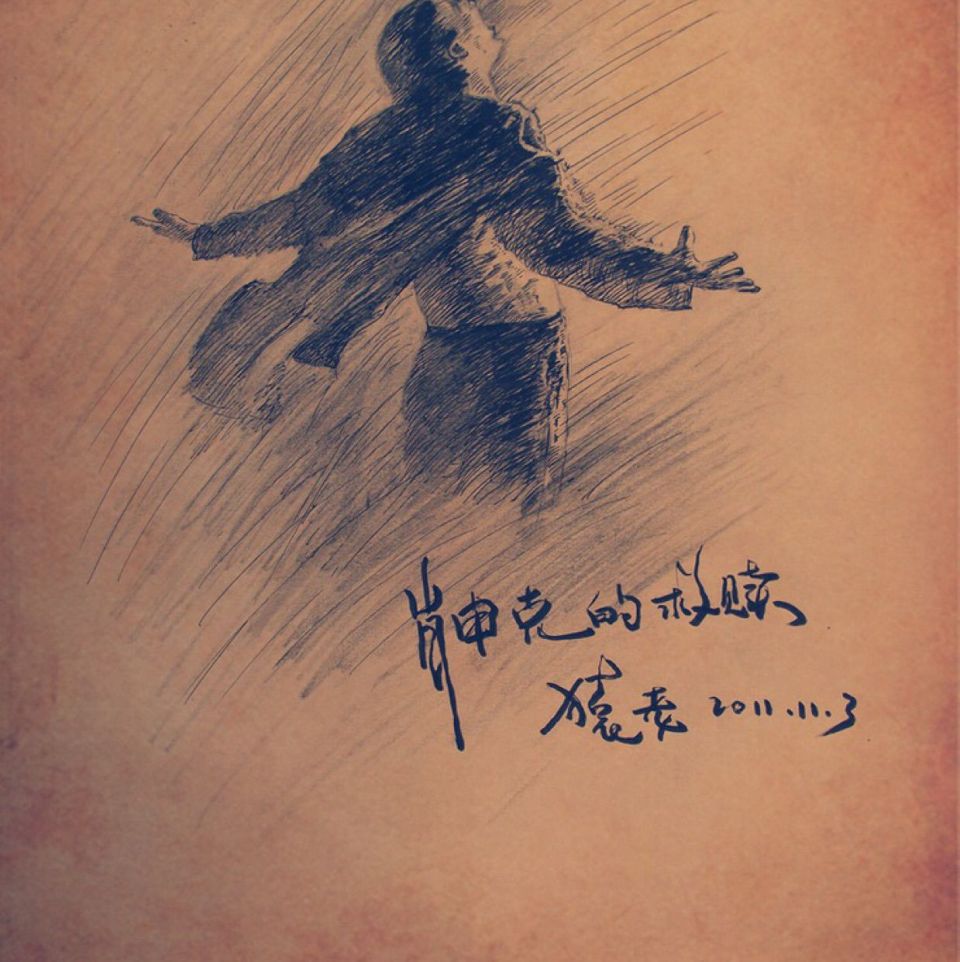 肖申克的救赎
猿老 2011.11.3